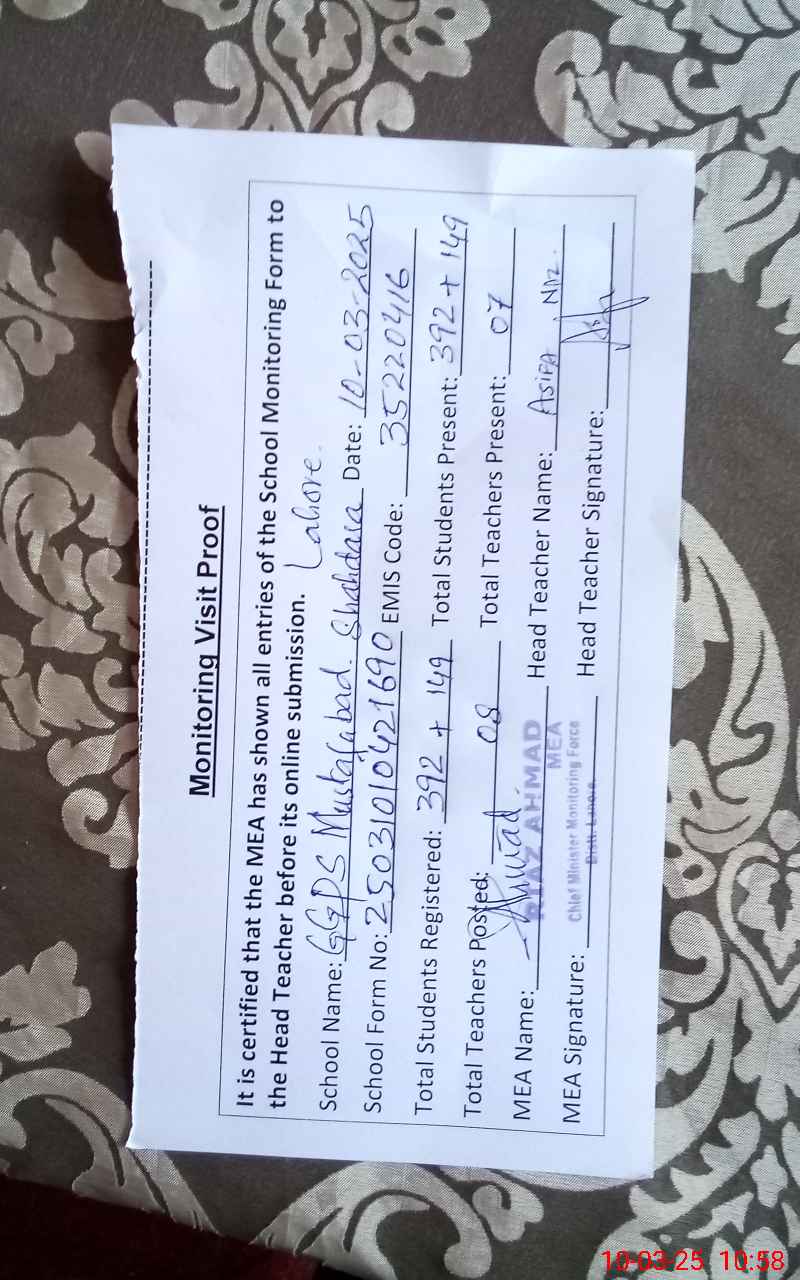 Monitoring Visit Proof
It is certified that the MEA has shown all entries of the School Monitoring Form to
the Head Teacher before its online submission.
Lahore.
School Name: GGPS Mustafabad. Shahdara Date: 10-03-2025
School Form No: 25031010421690 EMIS Code: 35220416
Total Students Registered: 392 + 149 Total Students Present: 392 + 149
Total Teachers Posted: 08 Total Teachers Present: 07
MEA Name: RIAZ AHMAD Head Teacher Name: ASIFA Naz.
MEA
Chief Minister Monitoring Force
MEA Signature: Head Teacher Signature:
Distt. Lahore.
10-03-25 10:58